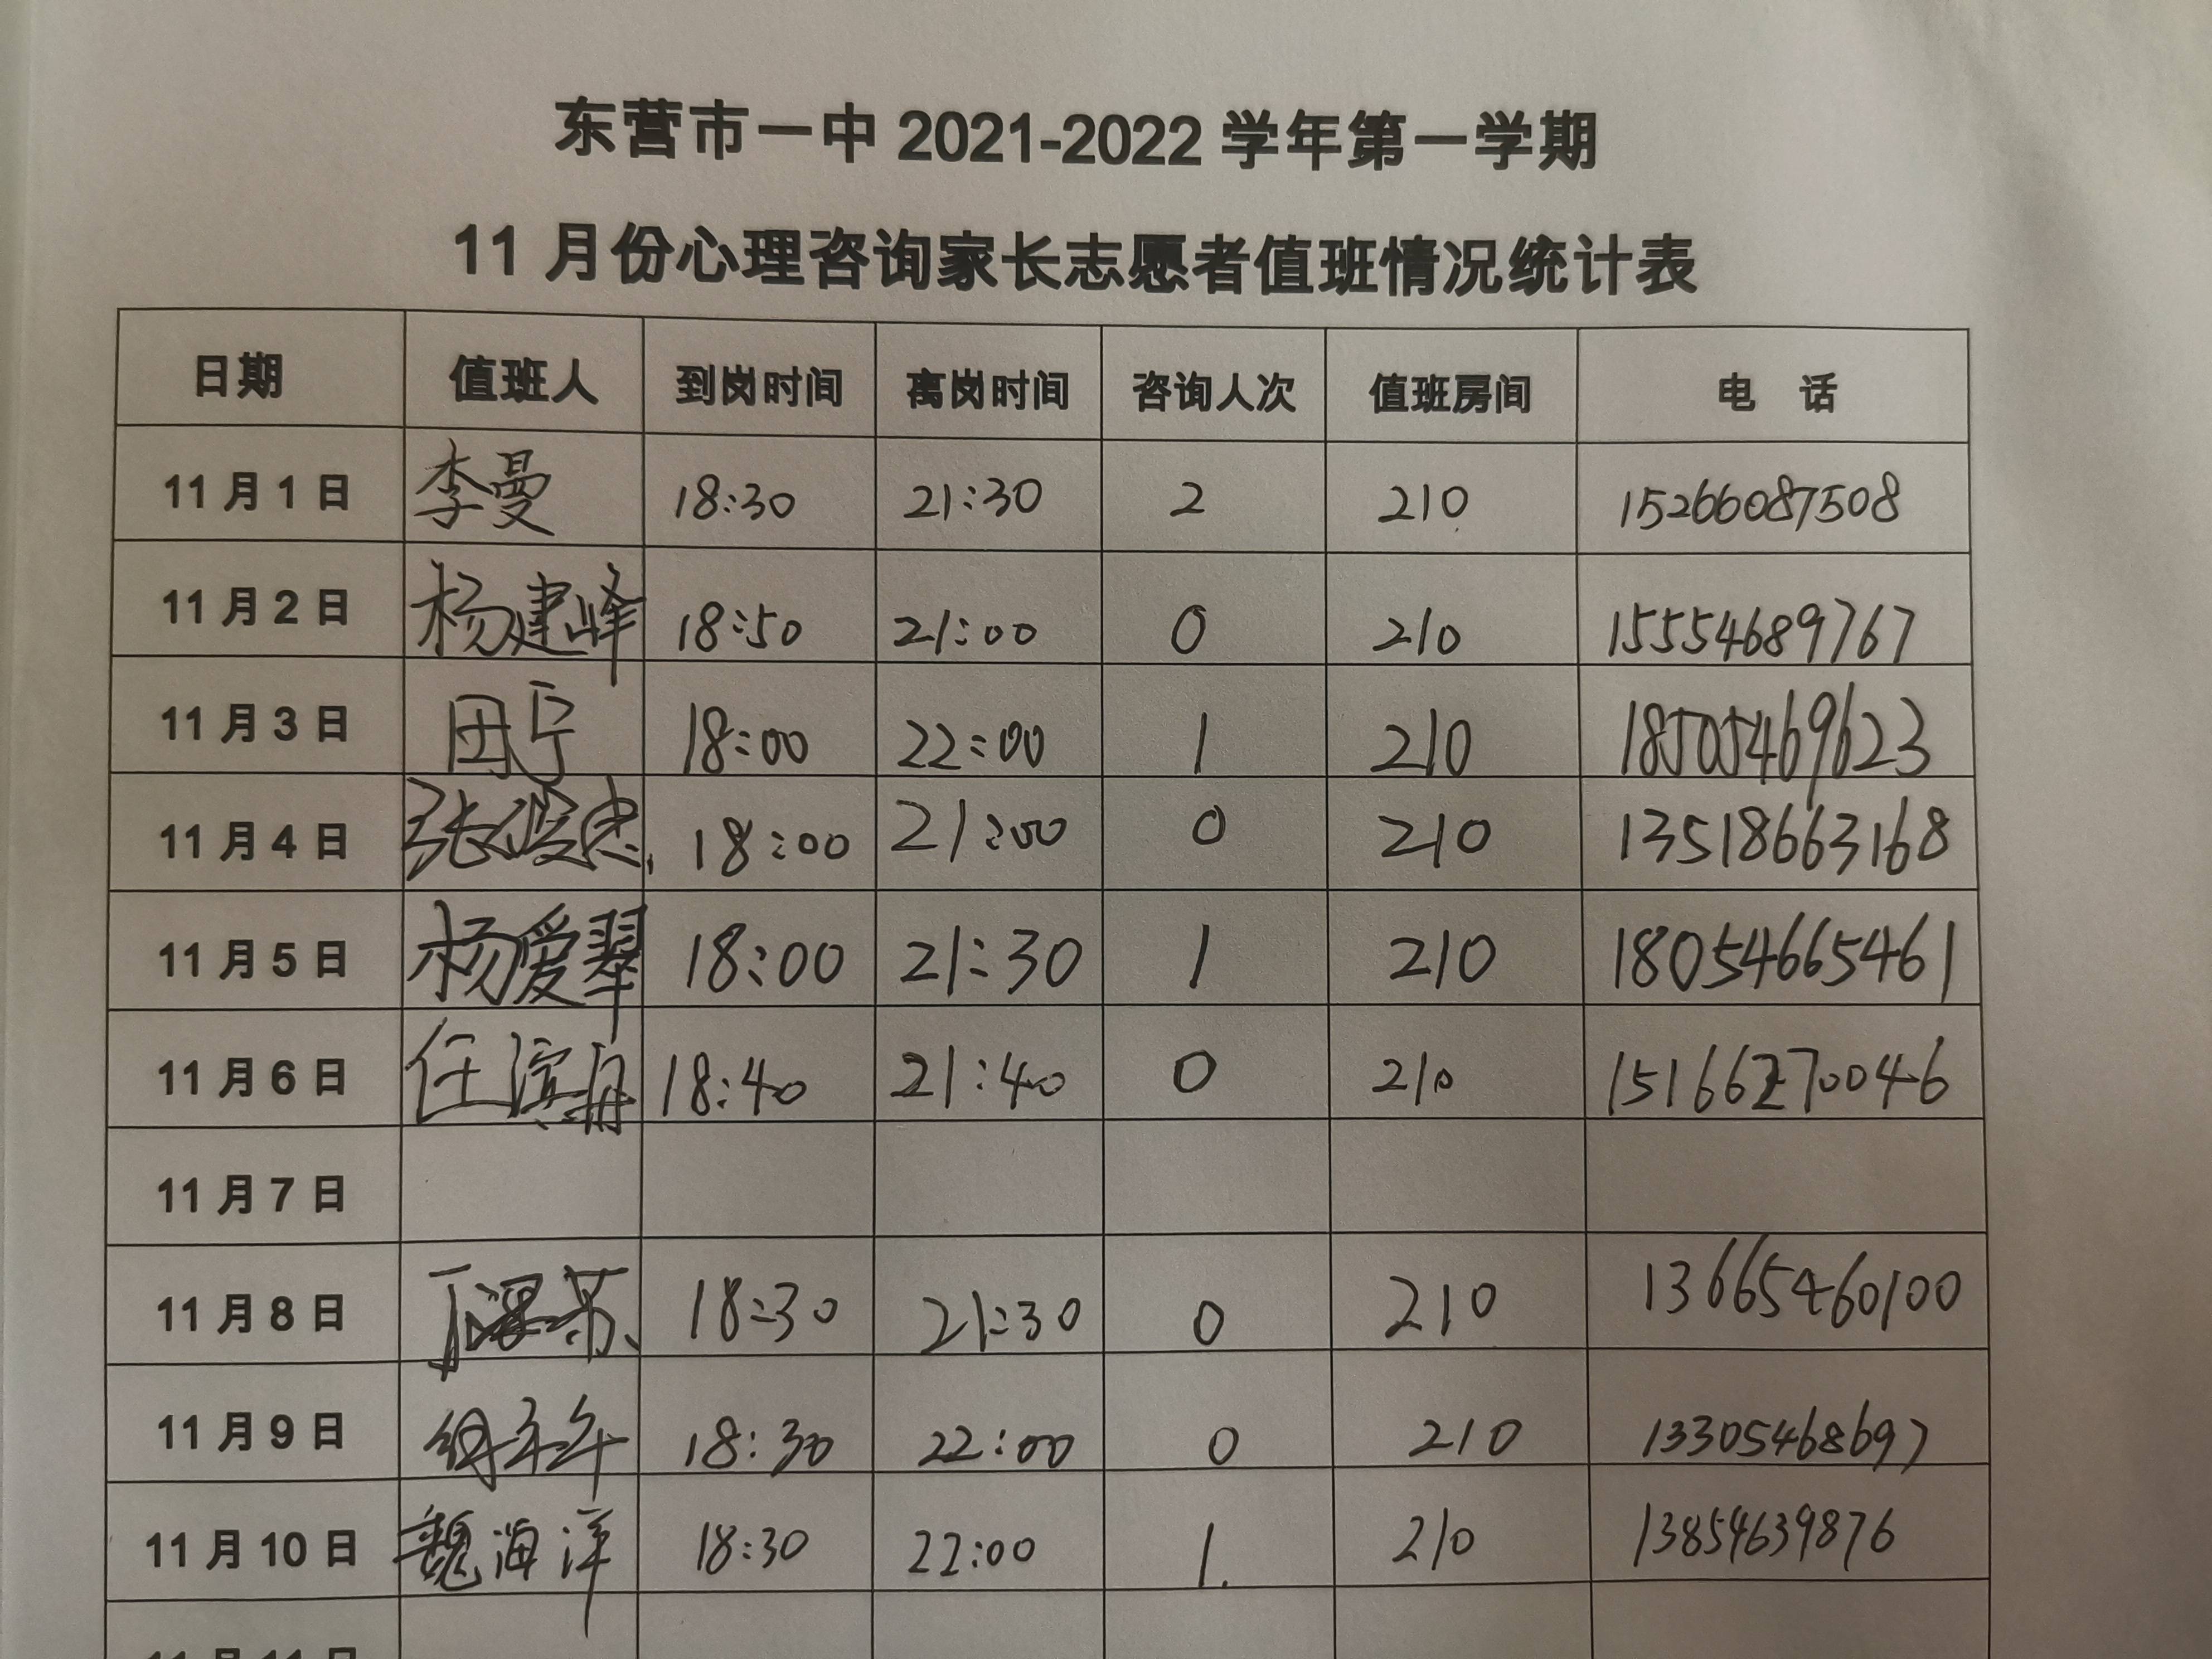 东营市一中 2021-2022 学年第一学期
11 月份心理咨询家长志愿者值班情况统计表
日期 值班人 到岗时间 离岗时间 咨询人次 值班房间 电 话
11 月 1 日 李曼 18:30 21:30 2 210 15266087508
11 月 2 日 杨建峰 18:50 21:00 0 210 15554689767
11 月 3 日 田宁 18:00 22:00 1 210 18505469623
11 月 4 日 张俊忠 18:00 21:00 0 210 13518663168
11 月 5 日 杨爱翠 18:00 21:30 1 210 18054665461
11 月 6 日 任滨舟 18:40 21:40 0 210 15166270046
11 月 7 日
11 月 8 日 18:30 21:30 0 210 13665460100
11 月 9 日 18:30 22:00 0 210 13305468697
11 月 10 日 魏海洋 18:30 22:00 1. 210 13854639876